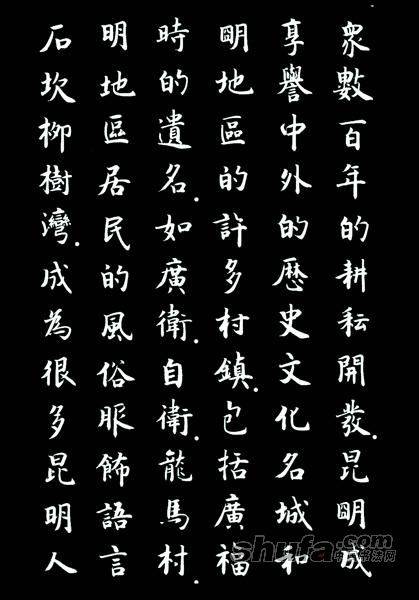 衆數百年的耕耘開發.昆明成
享譽中外的歷史文化名城和
明地區的許多村鎮.包括廣福
時的遺名.如廣衛.自衛.龍馬村.
明地區居民的風俗服飾語言
石坎柳樹灣.成為很多昆明人
shufa.com